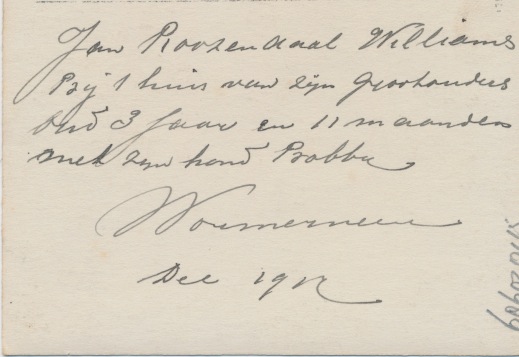 Jan Roozendaal Williams
Bij 't huis van zijn Grootouders
Oud 3 Jaar en 11 maanden
met zijn hond Bobby
Wormerveer
Dec 1912